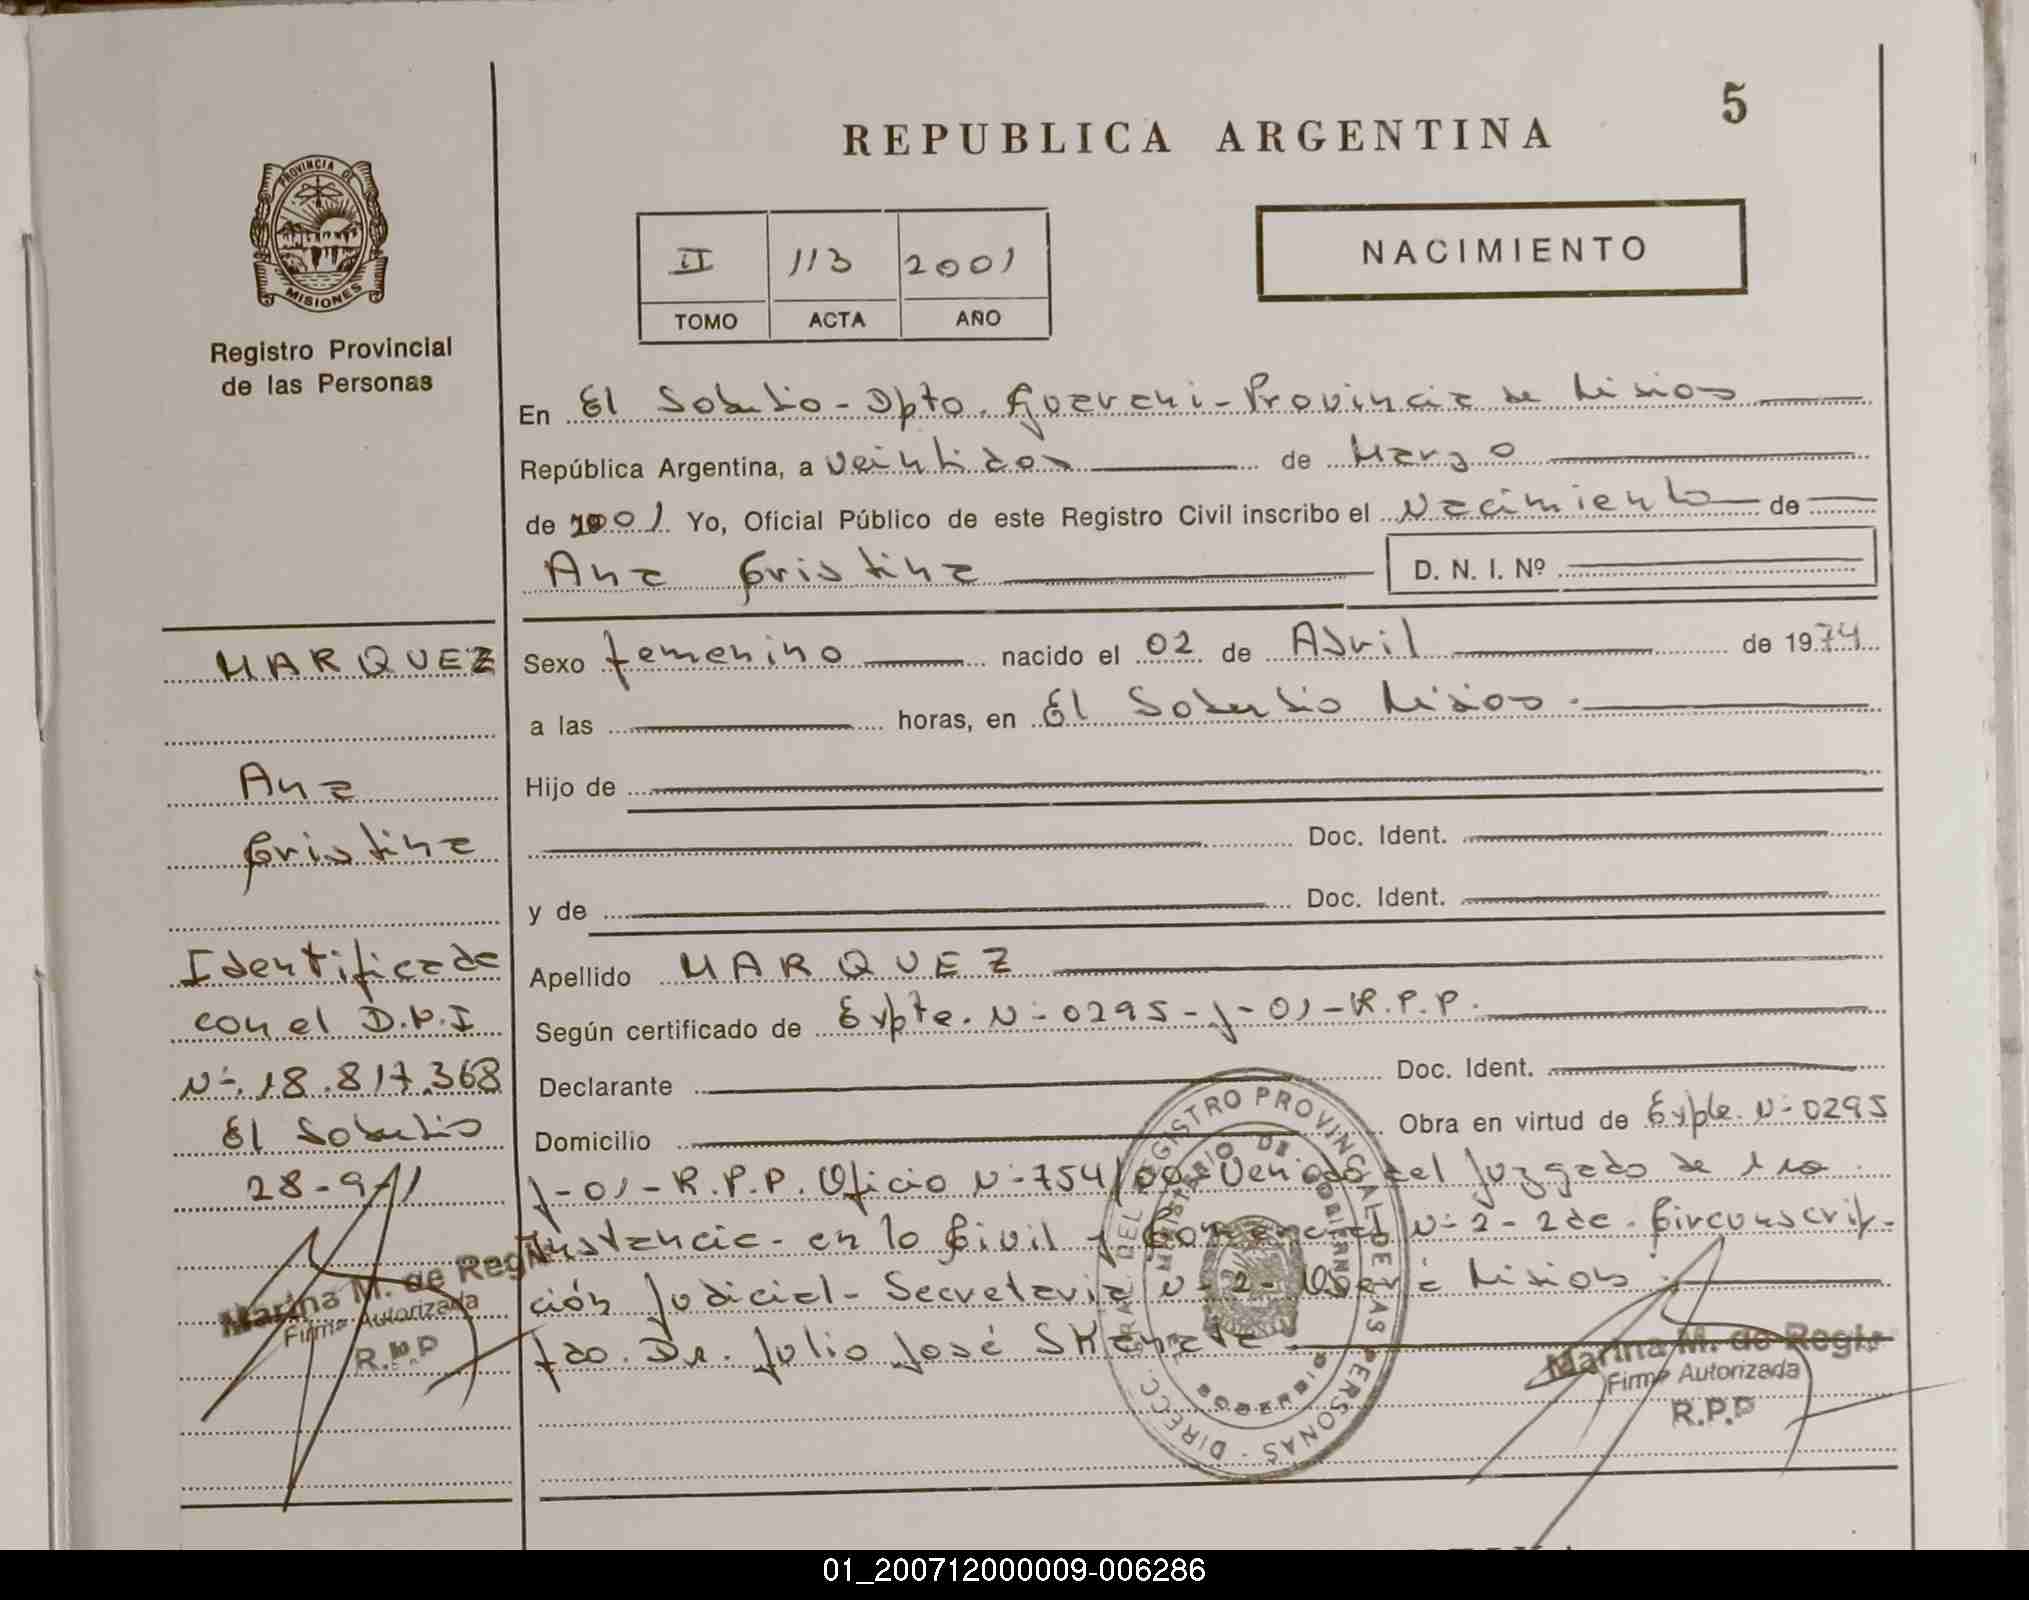 5
REPUBLICA ARGENTINA
PROVINCIA DE
MISIONES
Registro Provincial
de las Personas
II 113 2001
TOMO ACTA AÑO
NACIMIENTO
En El Soberbio - Dpto. Guarani - Provincia de Misiones
República Argentina, a veintidos de Marzo
de 2001 Yo, Oficial Público de este Registro Civil inscribo el Nacimiento de
Ana Cristina D. N. I. Nº
MARQUEZ
Ana
Cristina
Identificada
con el D.N.I
Nº 18.817.368
El Soberbio
28-9-
Marina M. de Regis
Firma Autorizada
R.P.P
Sexo femenino nacido el 02 de Abril de 1974
a las horas, en El Soberbio Misiones.
Hijo de
Doc. Ident.
y de Doc. Ident.
Apellido MARQUEZ
Según certificado de Expte. Nº 0295-J-01-R.P.P.
Declarante Doc. Ident.
Domicilio Obra en virtud de Expte. Nº 0295
J-01-R.P.P. Oficio Nº 754/00 del Juzgado de 1ra
Instancia en lo Civil y Comercial Nº 2 - 2da. Circunscrip-
ción Judicial - Secretaria Nº 2 - Oberá Misiones.
fdo. Dr. Julio José
DIRECC. GRAL. DEL REGISTRO PROVINCIAL DE LAS PERSONAS
MINISTERIO DE GOBIERNO
SOBERBIO
Marina M. de Regis
Firma Autorizada
R.P.P
01_200712000009-006286